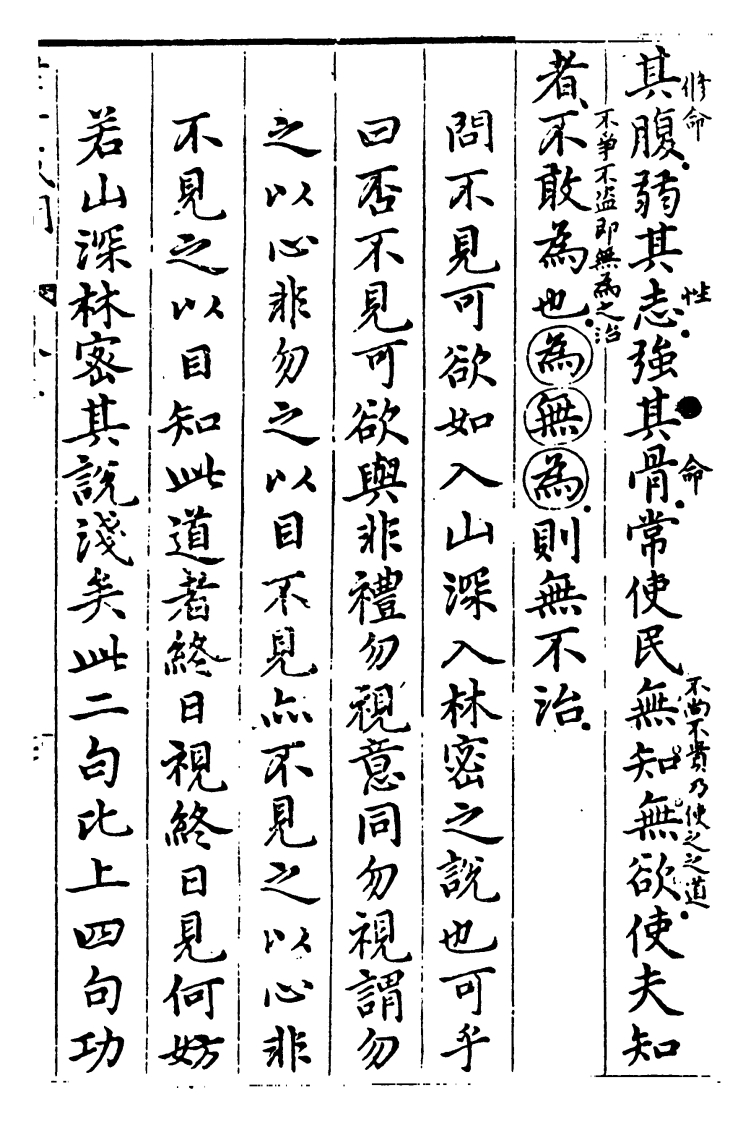 其腹弱其志強其骨常使民無知無欲使夫知
修命
性
命
不尚不貴乃使之之道
者不敢為也為無為則無不治
不爭不盜即無為之治
問不見可欲如入山深入林密之說也可乎
曰否不見可欲與非禮勿視意同勿視謂勿
之以心非勿之以目不見亦不見之以心非
不見之以目知此道者終日視終日見何妨
若山深林密其說淺矣此二句比上四句功